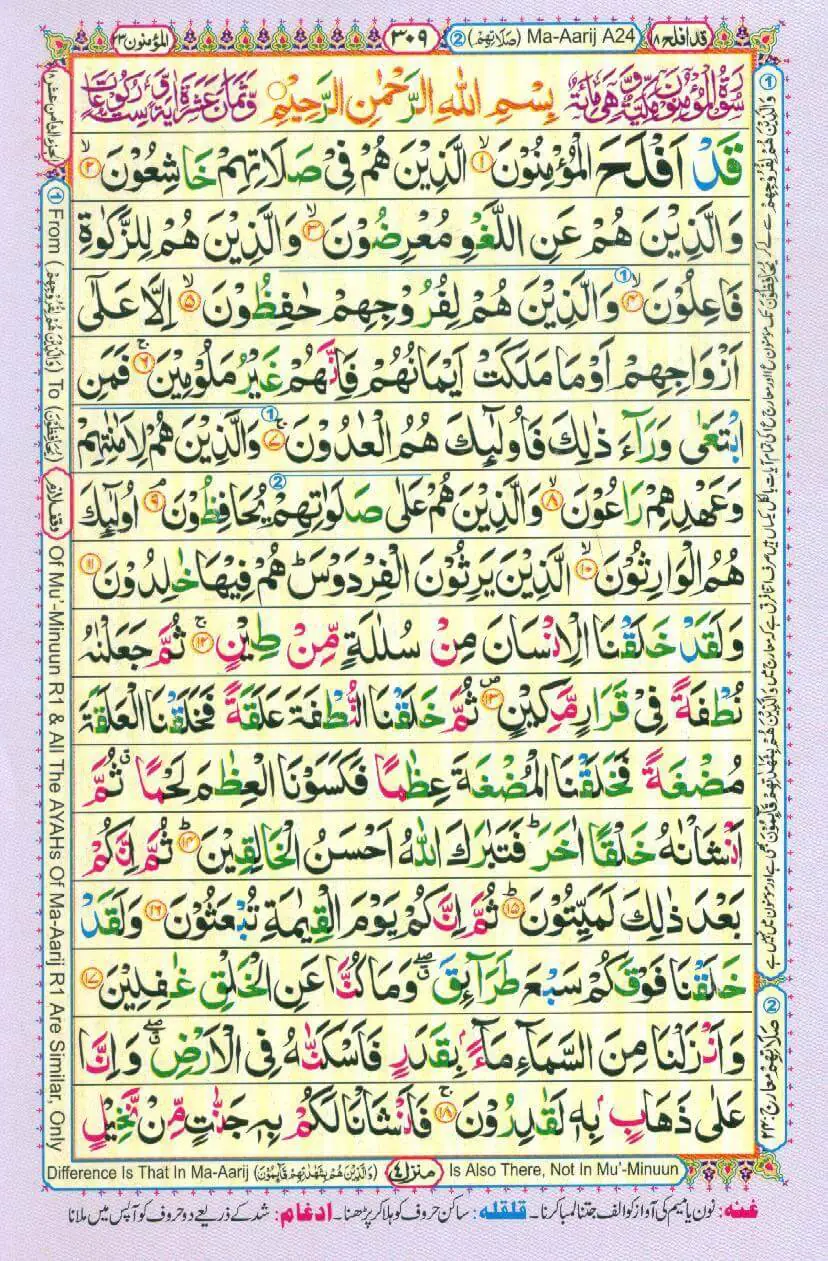 المؤمنون ٢٣
٣٠٩
② (صَلَاتِهِمْ) Ma-Aarij A24
قد افلح ١٨
سُوْرَةُ الْمُؤْمِنُوْنَ مَكِّيَّةٌ وَّهِيَ مِائَةٌ
بِسْمِ اللهِ الرَّحْمٰنِ الرَّحِيْمِ
وَّثَمَانَ عَشْرَةَ اٰيَةً وَّسِتُّ رُكُوْعَاتٍ
قَدْ اَفْلَحَ الْمُؤْمِنُوْنَ ۙ﴿١﴾ الَّذِيْنَ هُمْ فِيْ صَلَاتِهِمْ خَاشِعُوْنَ ۙ﴿٢﴾
وَالَّذِيْنَ هُمْ عَنِ اللَّغْوِ مُعْرِضُوْنَ ۙ﴿٣﴾ وَالَّذِيْنَ هُمْ لِلزَّكٰوةِ
فَاعِلُوْنَ ۙ﴿٤﴾ ① وَالَّذِيْنَ هُمْ لِفُرُوْجِهِمْ حٰفِظُوْنَ ۙ﴿٥﴾ اِلَّا عَلٰٓى
اَزْوَاجِهِمْ اَوْ مَا مَلَكَتْ اَيْمَانُهُمْ فَاِنَّهُمْ غَيْرُ مَلُوْمِيْنَ ۚ﴿٦﴾ فَمَنِ
ابْتَغٰى وَرَآءَ ذٰلِكَ فَاُولٰٓئِكَ هُمُ الْعٰدُوْنَ ۚ﴿٧﴾ ① وَالَّذِيْنَ هُمْ لِاَمٰنٰتِهِمْ
وَعَهْدِهِمْ رَاعُوْنَ ۙ﴿٨﴾ وَالَّذِيْنَ هُمْ عَلٰى ② صَلَوٰتِهِمْ يُحَافِظُوْنَ ۘ﴿٩﴾ اُولٰٓئِكَ
هُمُ الْوَارِثُوْنَ ۙ﴿١٠﴾ الَّذِيْنَ يَرِثُوْنَ الْفِرْدَوْسَ ؕ هُمْ فِيْهَا خٰلِدُوْنَ ﴿١١﴾
وَلَقَدْ خَلَقْنَا الْاِنْسَانَ مِنْ سُلٰلَةٍ مِّنْ طِيْنٍ ۚ﴿١٢﴾ ثُمَّ جَعَلْنٰهُ
نُطْفَةً فِيْ قَرَارٍ مَّكِيْنٍ ۪﴿١٣﴾ ثُمَّ خَلَقْنَا النُّطْفَةَ عَلَقَةً فَخَلَقْنَا الْعَلَقَةَ
مُضْغَةً فَخَلَقْنَا الْمُضْغَةَ عِظٰمًا فَكَسَوْنَا الْعِظٰمَ لَحْمًا ۗ ثُمَّ
اَنْشَاْنٰهُ خَلْقًا اٰخَرَ ؕ فَتَبٰرَكَ اللهُ اَحْسَنُ الْخَالِقِيْنَ ؕ﴿١٤﴾ ثُمَّ اِنَّكُمْ
بَعْدَ ذٰلِكَ لَمَيِّتُوْنَ ؕ﴿١٥﴾ ثُمَّ اِنَّكُمْ يَوْمَ الْقِيٰمَةِ تُبْعَثُوْنَ ﴿١٦﴾ وَلَقَدْ
خَلَقْنَا فَوْقَكُمْ سَبْعَ طَرَآئِقَ ۖ وَمَا كُنَّا عَنِ الْخَلْقِ غٰفِلِيْنَ ﴿١٧﴾
وَاَنْزَلْنَا مِنَ السَّمَآءِ مَآءًۢ بِقَدَرٍ فَاَسْكَنّٰهُ فِي الْاَرْضِ ۖ وَاِنَّا
عَلٰى ذَهَابٍۭ بِهٖ لَقٰدِرُوْنَ ۚ﴿١٨﴾ فَاَنْشَاْنَا لَكُمْ بِهٖ جَنّٰتٍ مِّنْ نَّخِيْلٍ
① From (وَالَّذِيْنَ هُمْ لِفُرُوْجِهِمْ) To (يُحَافِظُوْنَ)
وقف لازم
Of Mu'-Minuun R1 & All The AYAHs Of Ma-Aarij R1 Are Similar, Only
Difference Is That In Ma-Aarij (وَالَّذِيْنَ هُمْ بِشَهٰدٰتِهِمْ قَآئِمُوْنَ)
منزل ٤
Is Also There, Not In Mu'-Minuun
② صَلَاتِهِمْ معارج ٢٣،
غنه: نون یا میم کی آواز کو الف جتنا لمبا کرنا۔ قلقله: ساکن حروف کو ہلا کر پڑھنا۔ ادغام: شد کے ذریعے دو حروف کو آپس میں ملانا